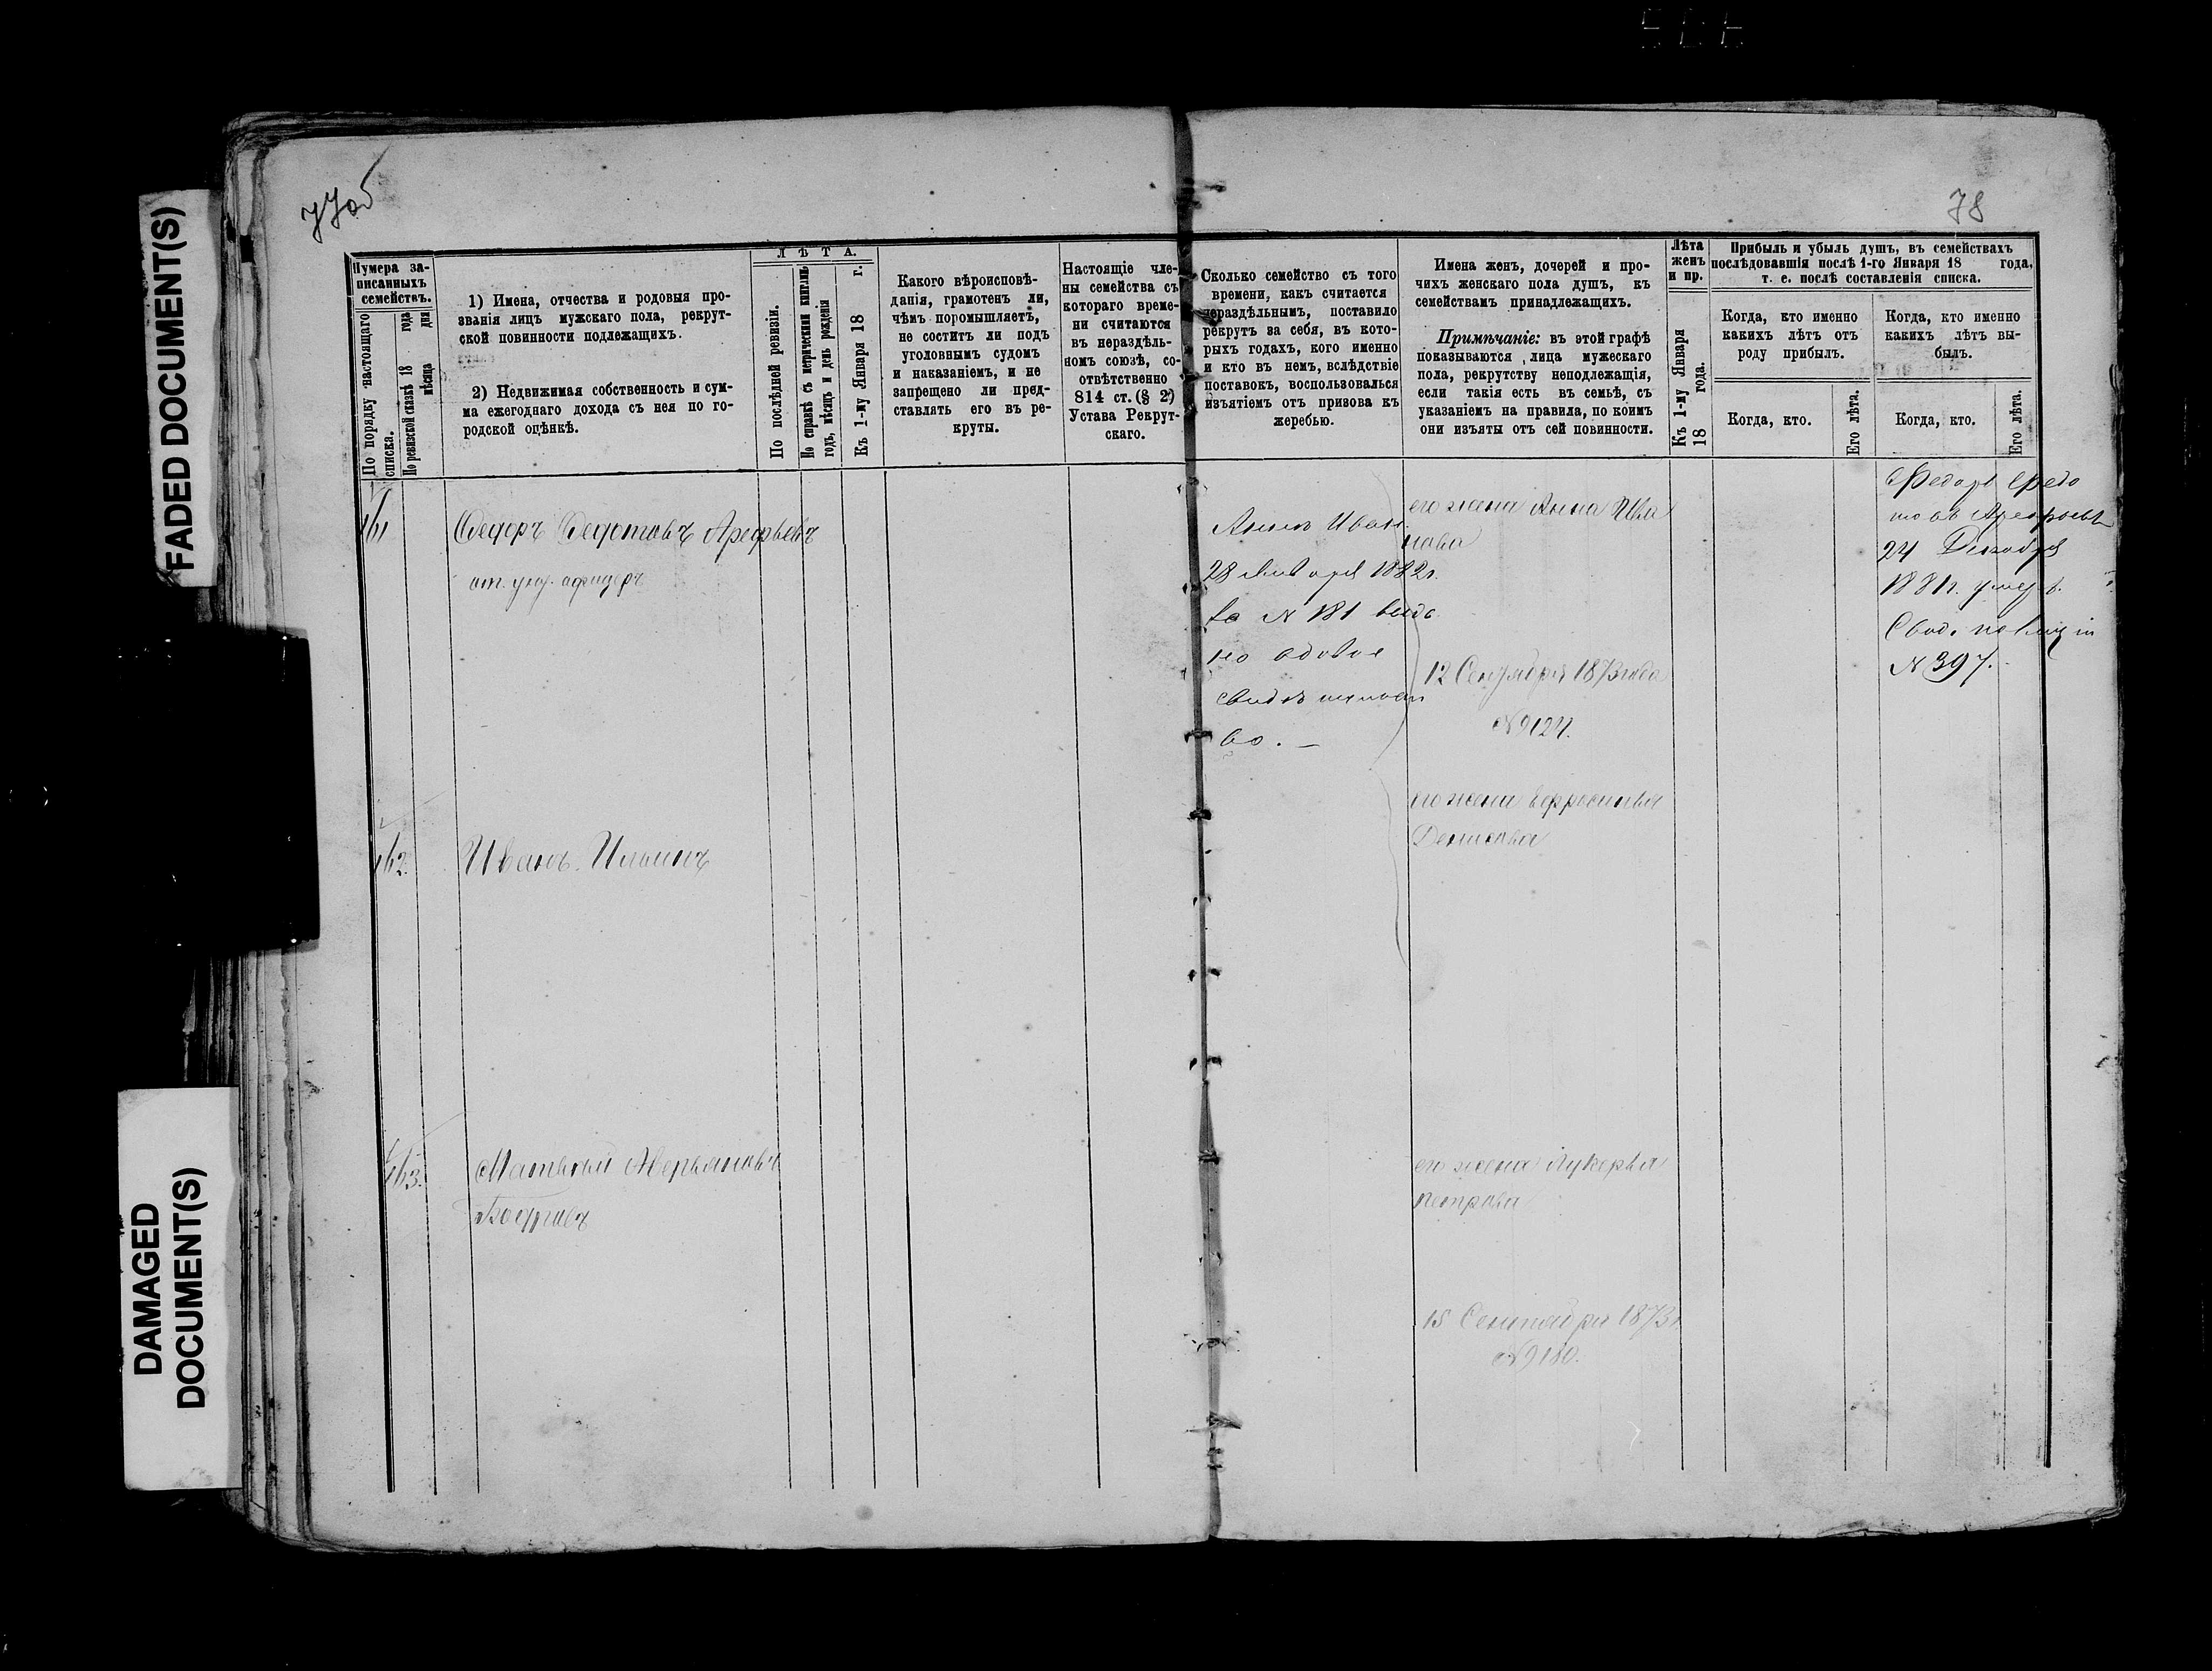 FADED DOCUMENT(S)
DAMAGED
DOCUMENT(S)
77об
78
Нумера за-
писанныхъ
семействъ.
По порядку настоящаго
списка.
По ревизской сказкѣ 18 года
мѣсяца дня
1) Имена, отчества и родовыя про-
званія лицъ мужскаго пола, рекрут-
ской повинности подлежащихъ.
2) Недвижимая собственность и сум-
ма ежегоднаго дохода съ нея по го-
родской оцѣнкѣ.
ЛѢТА.
По послѣдней ревизіи.
По справкѣ съ метрическими книгами
годъ, мѣсяцъ и день рожденія
Къ 1-му Января 18 г.
Какого вѣроисповѣ-
данія, грамотенъ ли,
чѣмъ поромышляетъ,
не соститъ ли подъ
уголовнымъ судомъ
и наказаніемъ, и не
запрещено ли пред-
ставлять его въ ре-
круты.
Настоящіе чле-
ны семейства съ
котораго време-
ни считаются
въ нераздѣль-
номъ союзѣ, со-
отвѣтственно
814 ст. (§ 2)
Устава Рекрут-
скаго.
Сколько семейство съ того
времени, какъ считается
нераздѣльнымъ, поставило
рекрутъ за себя, въ кото-
рыхъ годахъ, кого именно
и кто въ немъ, вслѣдствіе
поставокъ, воспользовался
изъятіемъ отъ призова къ
жеребью.
Имена женъ, дочерей и про-
чихъ женскаго пола душъ, къ
семействамъ принадлежащихъ.
Примѣчаніе: въ этой графѣ
показываются лица мужескаго
пола, рекрутству неподлежащія,
если такія есть въ семьѣ, съ
указаніемъ на правила, по коимъ
они изъяты отъ сей повинности.
Лѣта
женъ
и пр.
Къ 1-му Января
18 года.
Прибыль и убыль душъ, въ семействахъ
послѣдовавшія послѣ 1-го Января 18 года,
т. е. послѣ составленія списка.
Когда, кто именно
какихъ лѣтъ отъ
роду прибылъ.
Когда, кто.
Его лѣта.
Когда, кто именно
какихъ лѣтъ вы-
былъ.
Когда, кто.
Его лѣта.
161
Федоръ Федотовъ Арефьевъ
от. унт. офицеръ
Аннѣ Иван.
28 Января 1882г.
за № 181 выда
но вдовье
свидѣтельст
во. —
его жена Анна Ива
нова
12 Сентября 1873 года
№ 9124.
Федоръ Федо
товъ Арефьевъ
24 Декабря
1881г. умеръ.
№ 397.
162.
Иванъ Ильинъ
его жена Ефросинья
Денисова
163.
Матвѣй Аверьяновъ
Бобровъ
его жена Лукерья
Петрова
15 Сентября 1873г.
№ 9180.